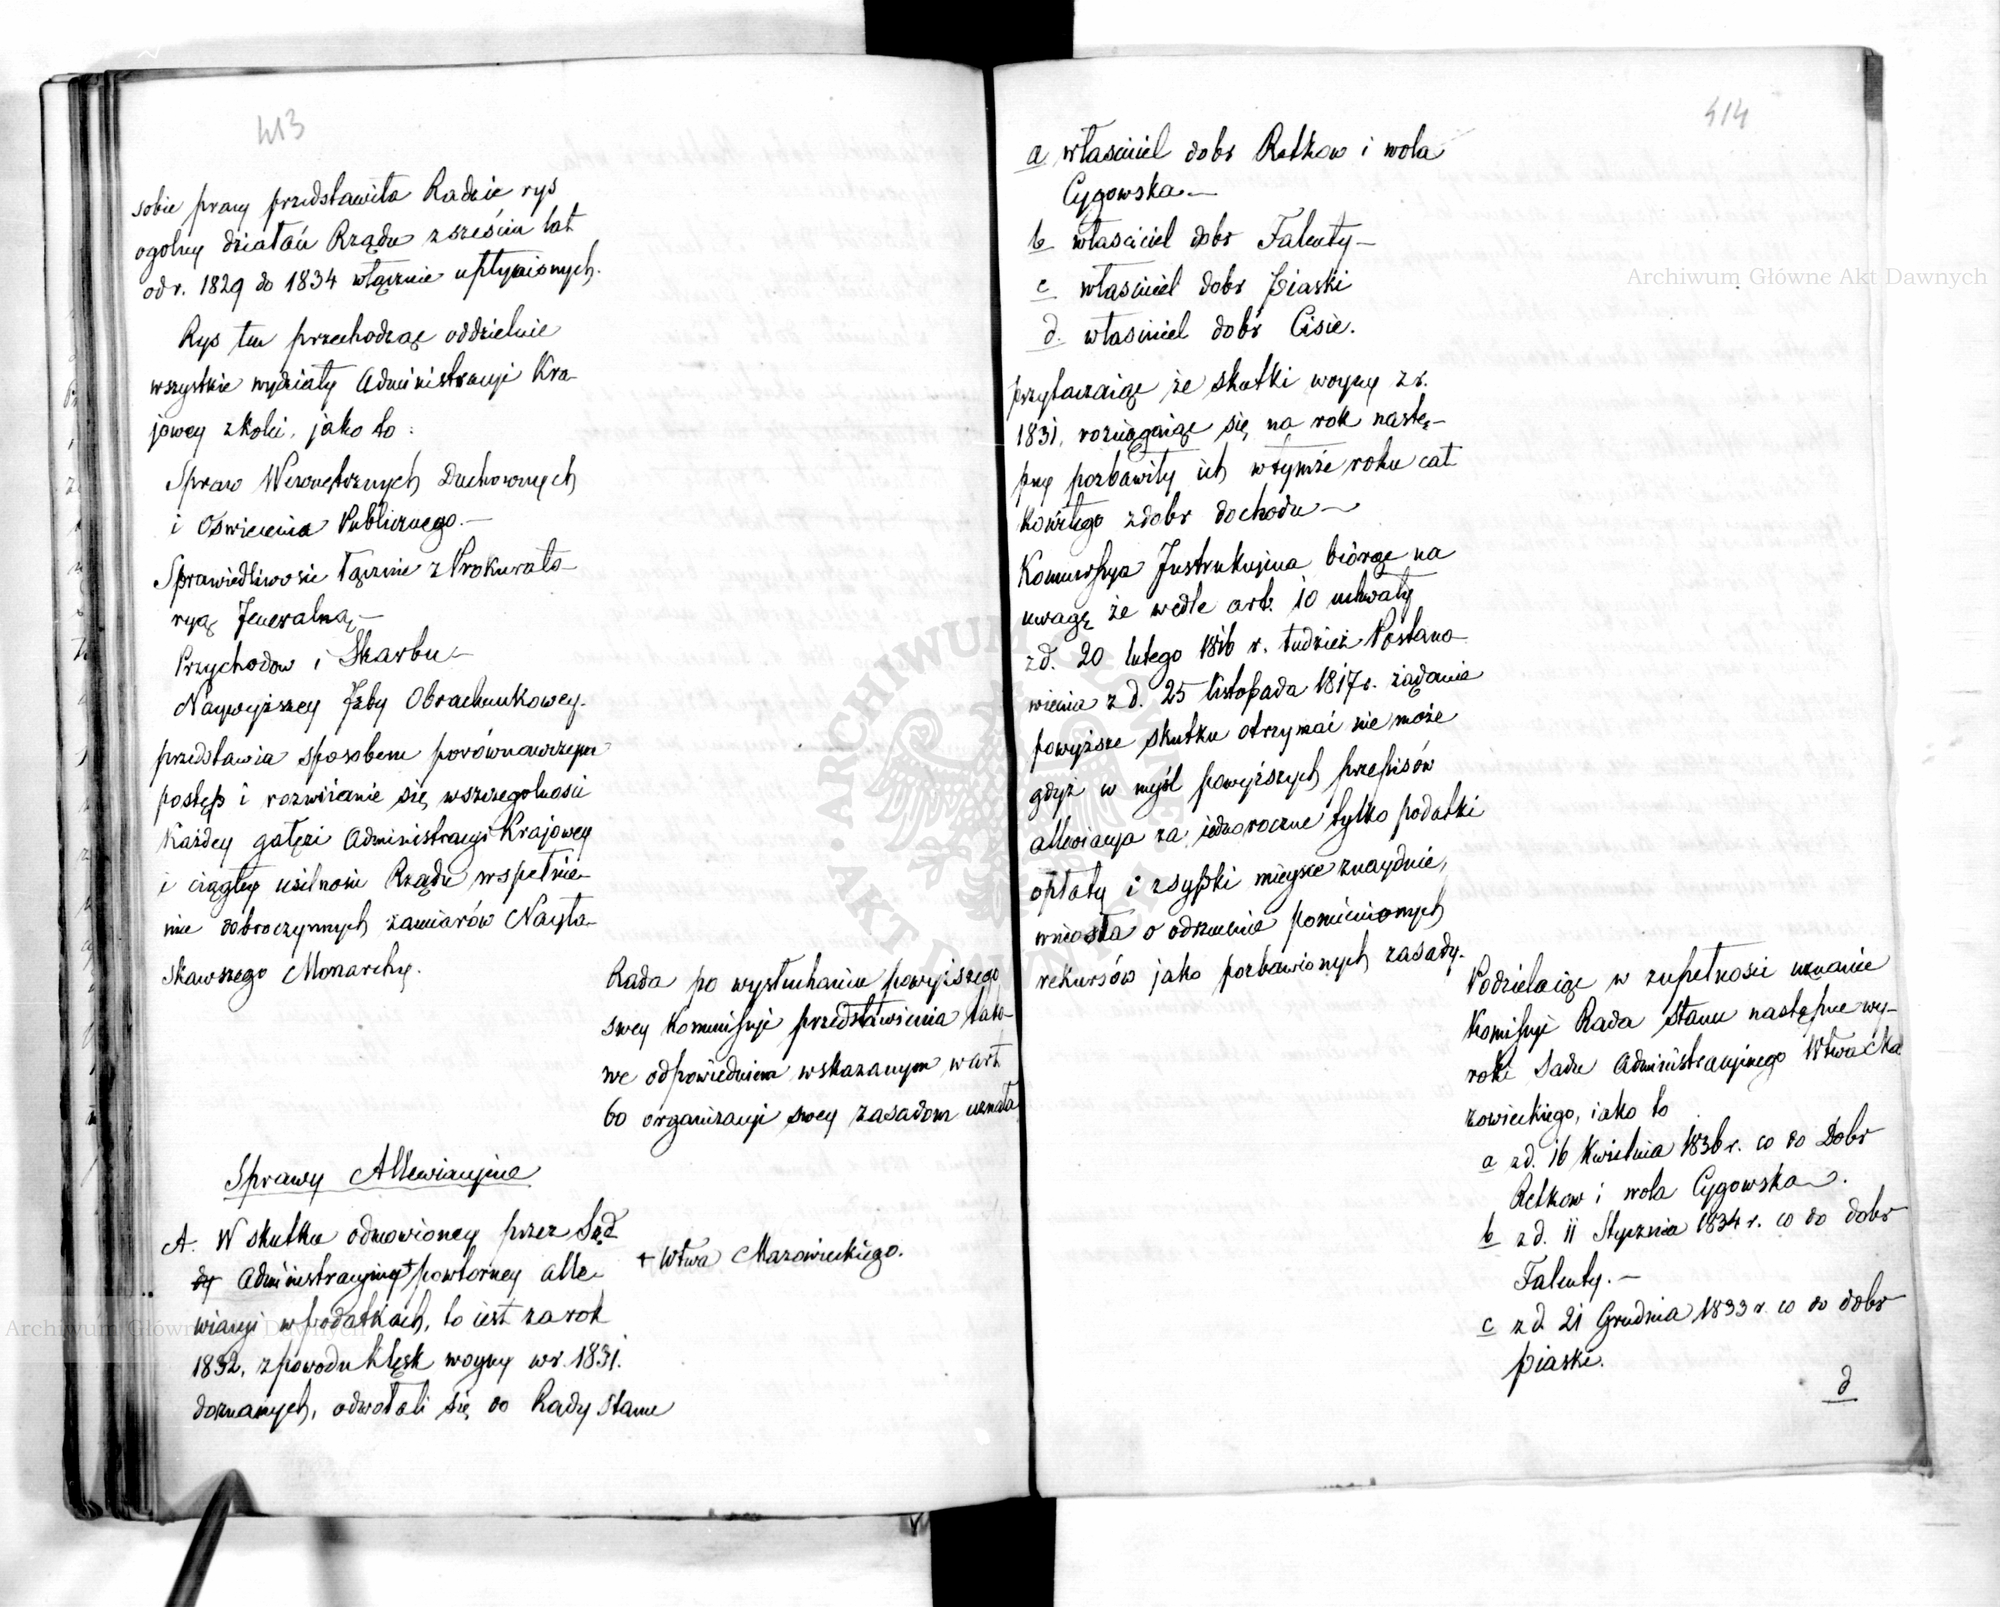 413
sobie pracy przedstawiła Radzie rys
ogólny działań Rządu z sześciu lat
od r. 1829 do 1834 włącznie upłynionych.
Rys ten przechodząc oddzielnie
wszystkie wydziały Administracyi Kra-
jowey z kolei, jako to:
Spraw Wewnętrznych Duchownych
i Oświecenia Publicznego.—
Sprawiedliwości łącznie z Prokurato-
ryą Jeneralną,—
Przychodow i Skarbu—
Naywyższey Izby Obrachunkowey.
przedstawia sposobem porównawczym
postęp i rozwijanie się w szczegolności
każdey gałęzi Administracyi Krajowey
i ciągłey usilności Rządu w spełnie-
niu dobroczynnych zamiarów Nayła-
skawszego Monarchy.
Rada po wysłuchaniu powyższego
swey Kommissyi przedstawienia tako-
we odpowiedniem wskazanym w art
60 organizacyi swey zasadom uznała
Sprawy Allewiacyine
A. W skutku odmowioney przez Sąd
Administracyiny + powtorney alle-
wiacyi w podatkach, to iest za rok
1832, z powodu klęsk woyny w r. 1831.
doznanych, odwołali się do Rady Stanu
+ Wtwa Mazowieckiego.
414
a właściciel dobr Retkow i wola
Cygowska.—
b właściciel dobr Falenty—
c właściciel dobr Piaski
d. właściciel dobr Cisie.
przytaczaiąc że skutki woyny z r.
1831, rozciągaiąc się na rok nastę-
pny pozbawiły ich w tymże roku cał
kowitego z dobr dochodu—
Kommissya Instrukcyina biorąc na
uwagę że wedle art. 10 uchwały
z d. 20 lutego 1816 r. tudzież Postano-
wienia z d. 25 listopada 1817 r. żądanie
powyższe skutku otrzymać nie może
gdyż w myśl powyższych przepisów
allewiacya za iednoroczne tylko podatki
opłaty i zsypki mieysce znayduie,
wniosła o odrzucenie pomienionych
rekursów jako pozbawionych zasady.
Podzielaiąc w zupełności uznanie
Komissyi Rada Stanu następne wy-
roki Sądu Administracyinego Wtwa Ma
zowieckiego, iako to
a z d. 16 Kwietnia 1836 r. co do Dobr
Retkow i wola Cygowska.
b z d. 11 Stycznia 1834 r. co do dobr
Falenty.—
c z d. 21 Grudnia 1833 r. co do dobr
Piaski.
d
Archiwum Główne Akt Dawnych
Archiwum Główne Akt Dawnych
ARCHIWUM GŁÓWNE AKT DAWNYCH